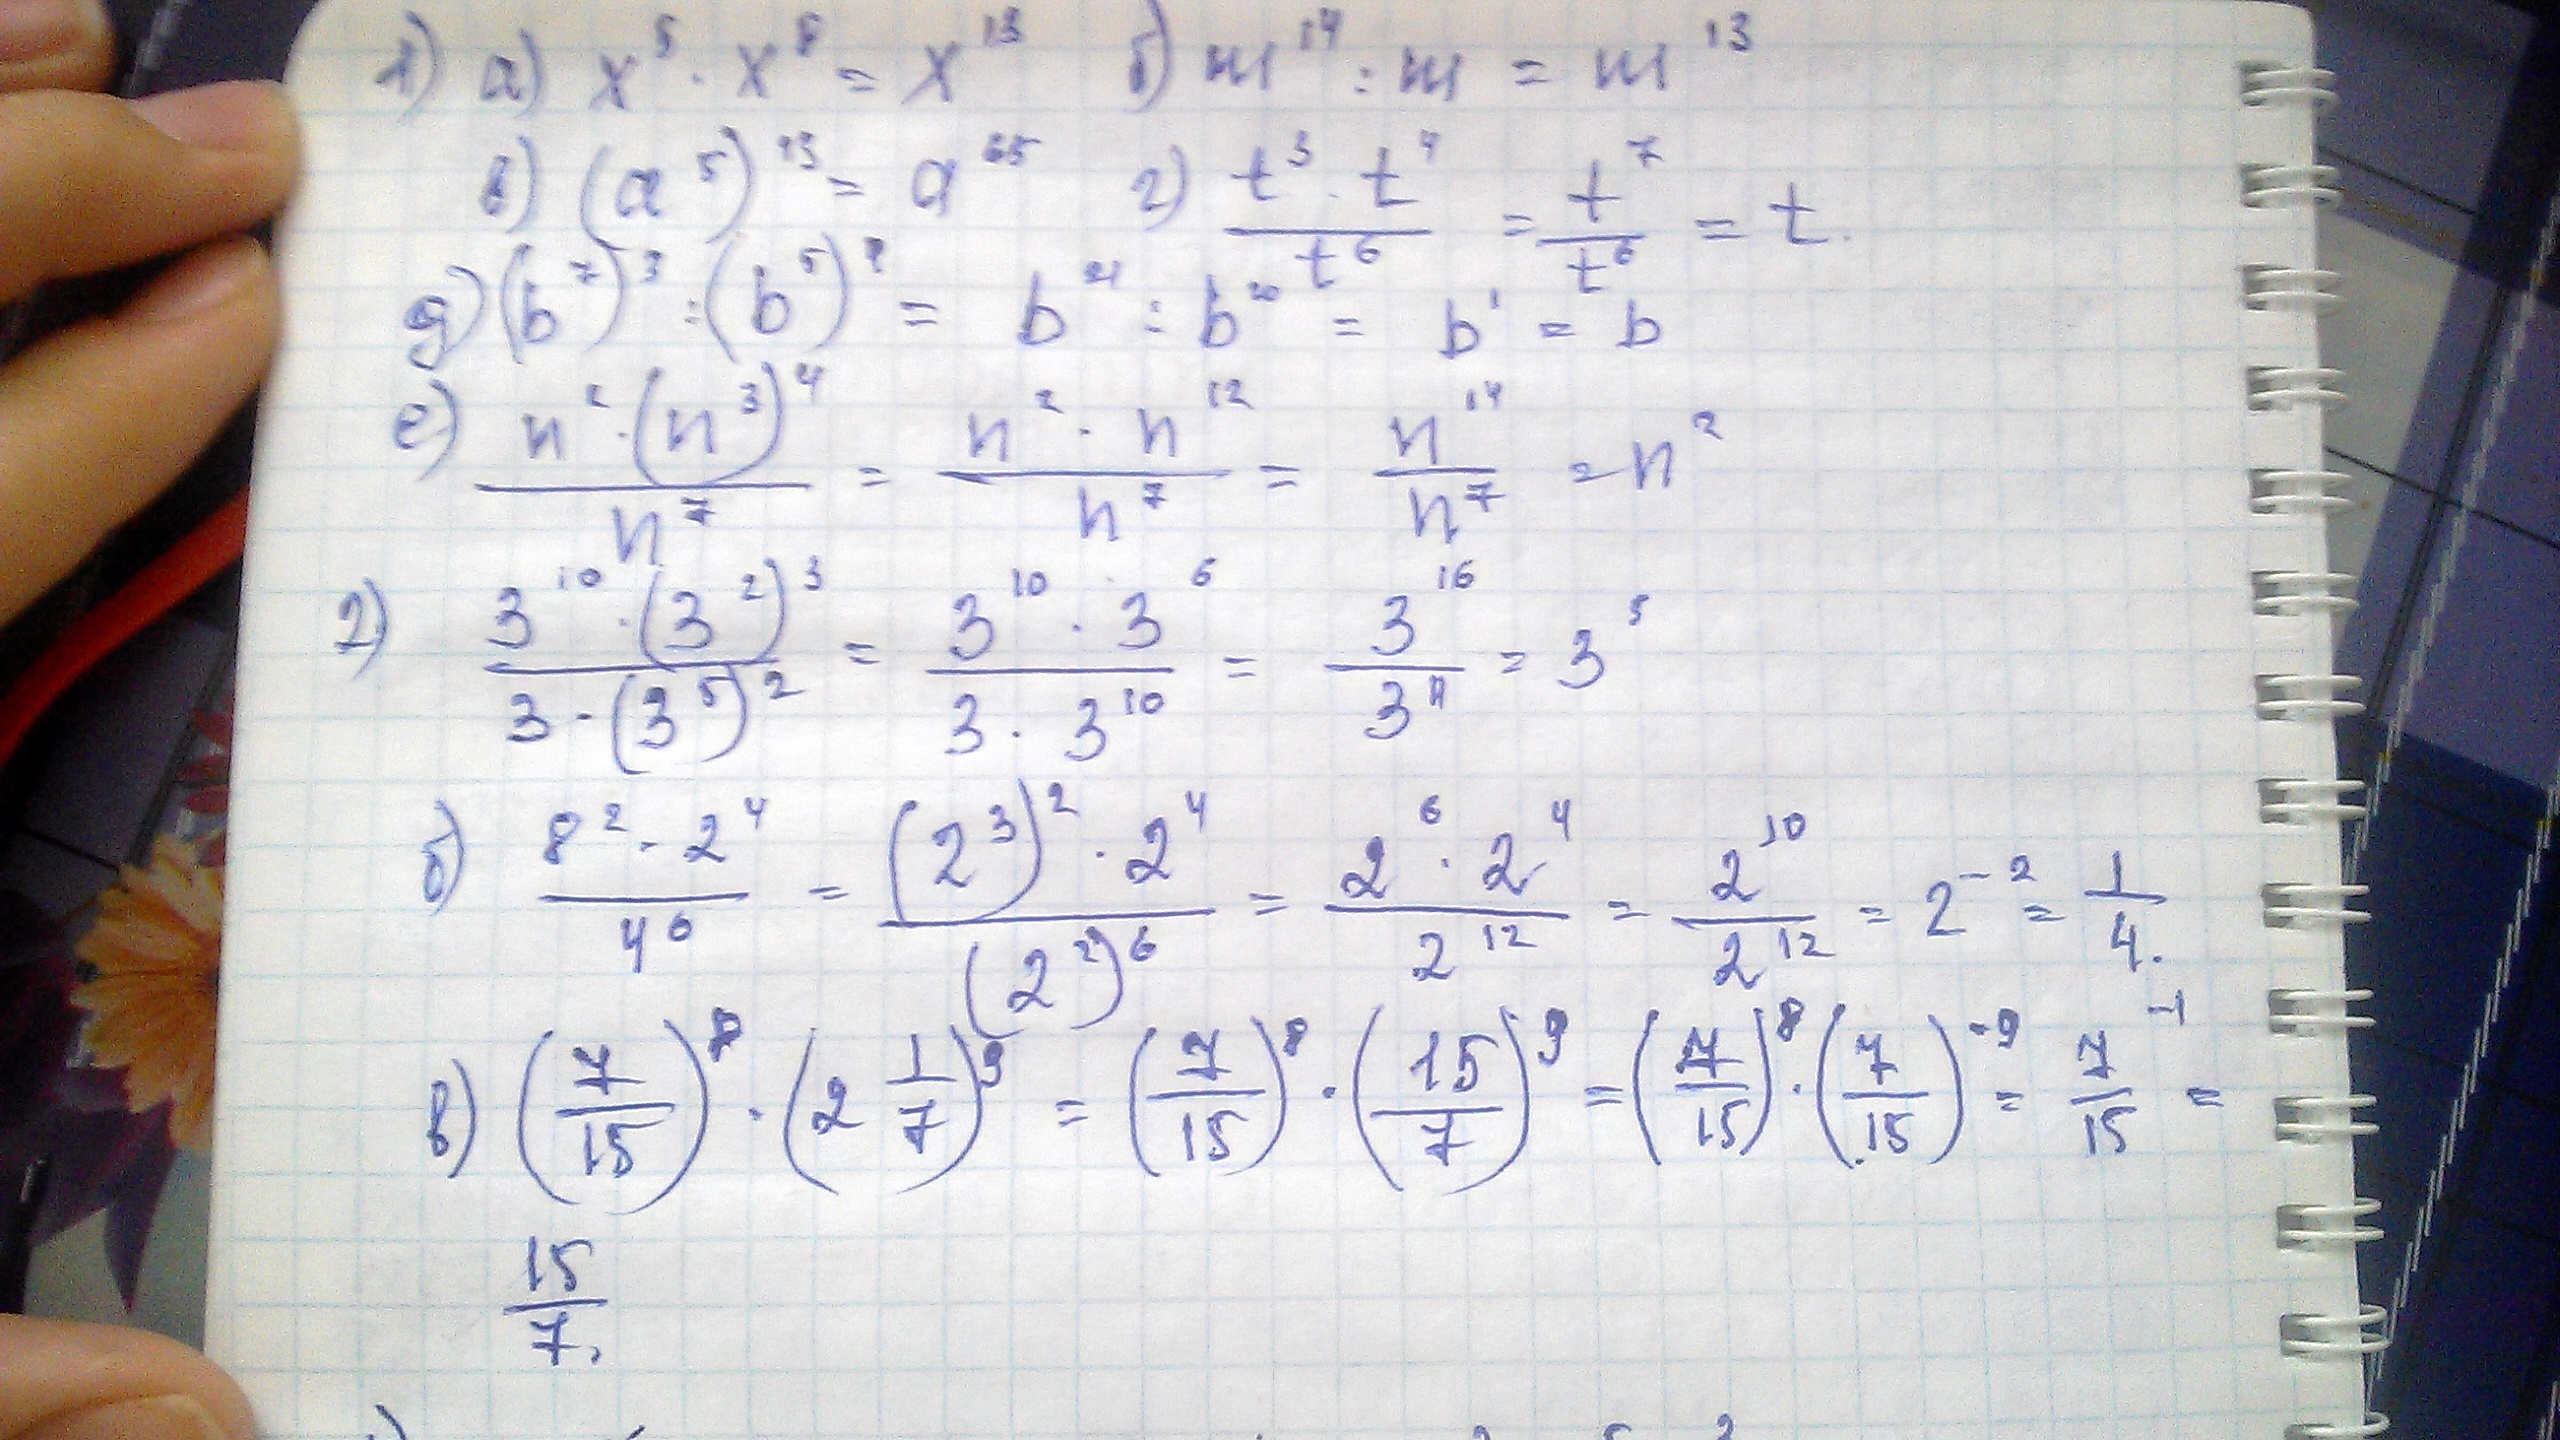 1) а) x⁵ · x⁸ = x¹³ б) m¹⁴ : m = m¹³
в) (a⁵)¹³ = a⁶⁵ г) (t³ · t⁴)/t⁶ = t⁷/t⁶ = t.
д) (b⁷)³ : (b⁵)⁴ = b²¹ : b²⁰ = b¹ = b
е) (n² · (n³)⁴)/n⁷ = (n² · n¹²)/n⁷ = n¹⁴/n⁷ = n²
2) (3¹⁰ · (3²)³)/(3 · (3⁵)²) = (3¹⁰ · 3⁶)/(3 · 3¹⁰) = 3¹⁶/3¹¹ = 3⁵
б) (8² · 2⁴)/4⁶ = ((2³)² · 2⁴)/(2²)⁶ = (2⁶ · 2⁴)/2¹² = 2¹⁰/2¹² = 2⁻² = 1/4.
в) (7/15)⁸ · (2 1/7)⁹ = (7/15)⁸ · (15/7)⁹ = (7/15)⁸ · (7/15)⁻⁹ = 7/15⁻¹ =
15/7.